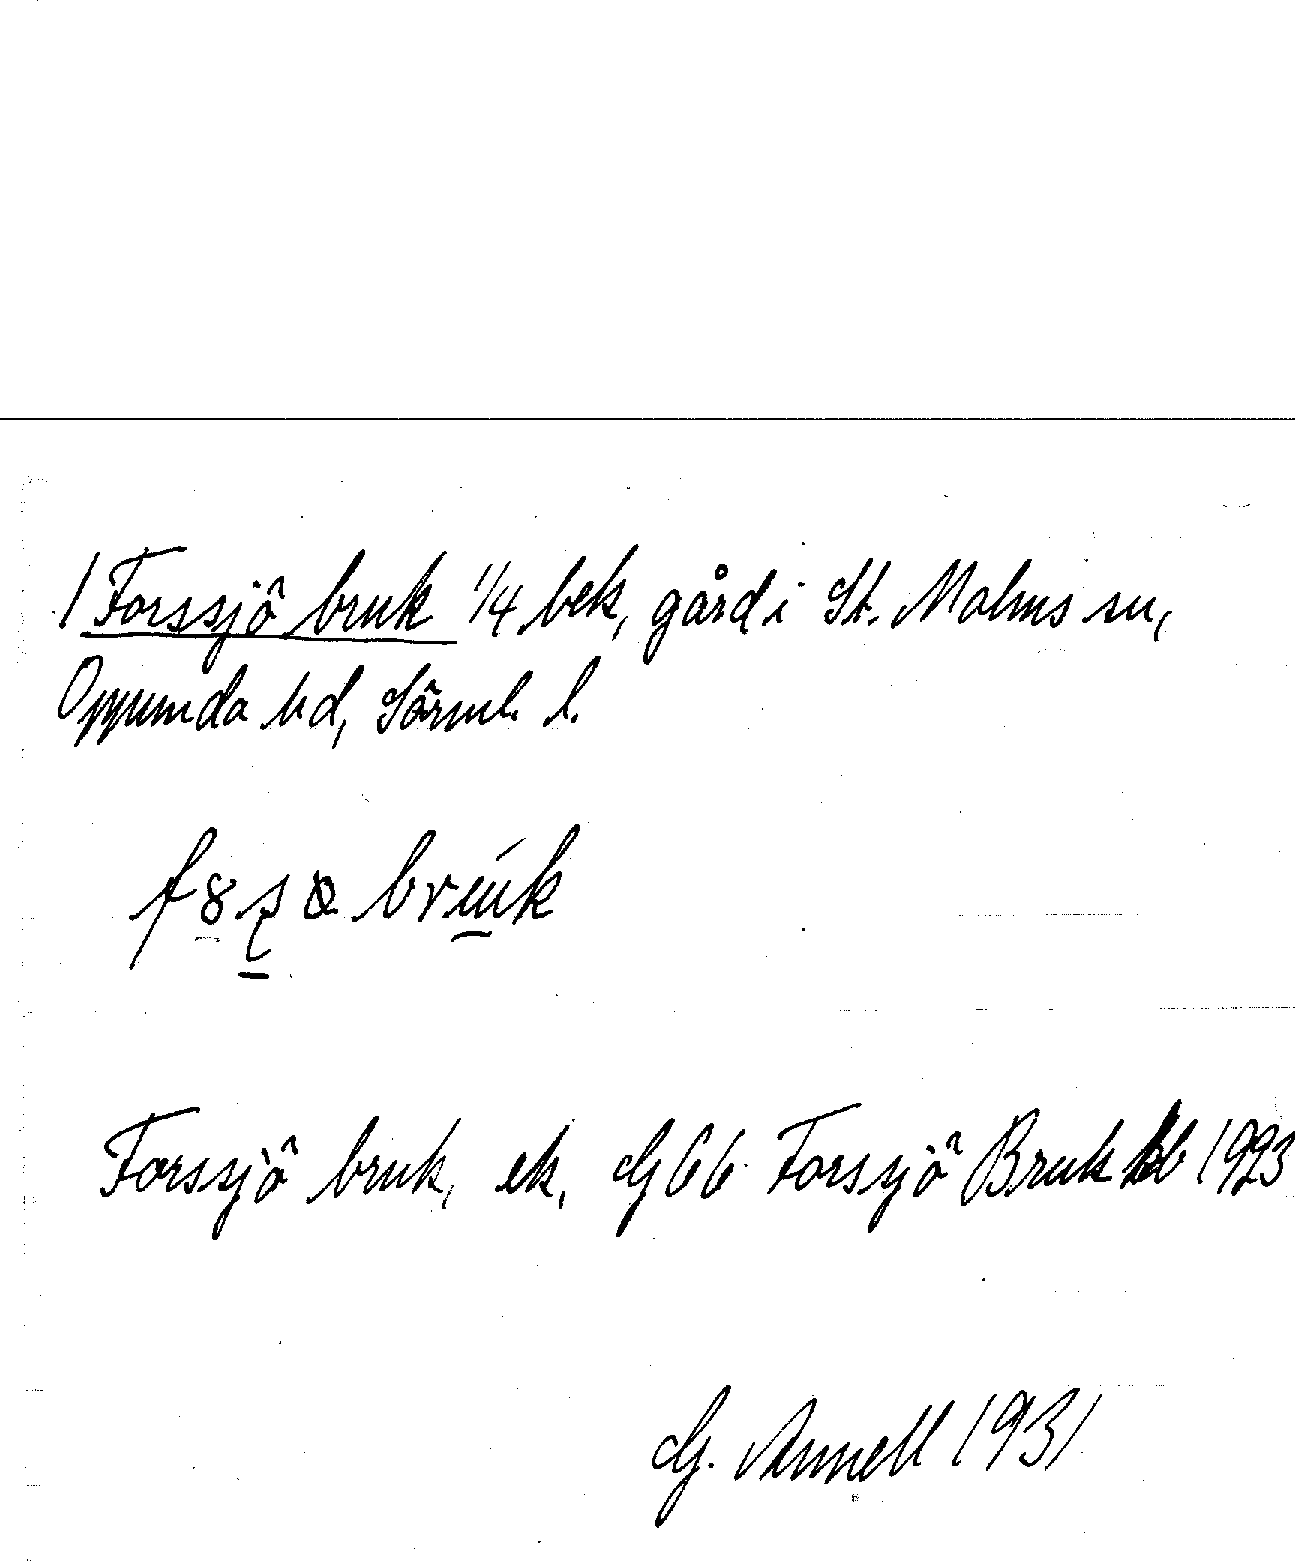 1 Forssjö bruk 1/4 bek, gård i St. Malms sn,
Oppunda hd, Södml. l.
bruk
Forssjö bruk, ek, GGb Forssjö Bruk kb 1923
G. Annell 1931